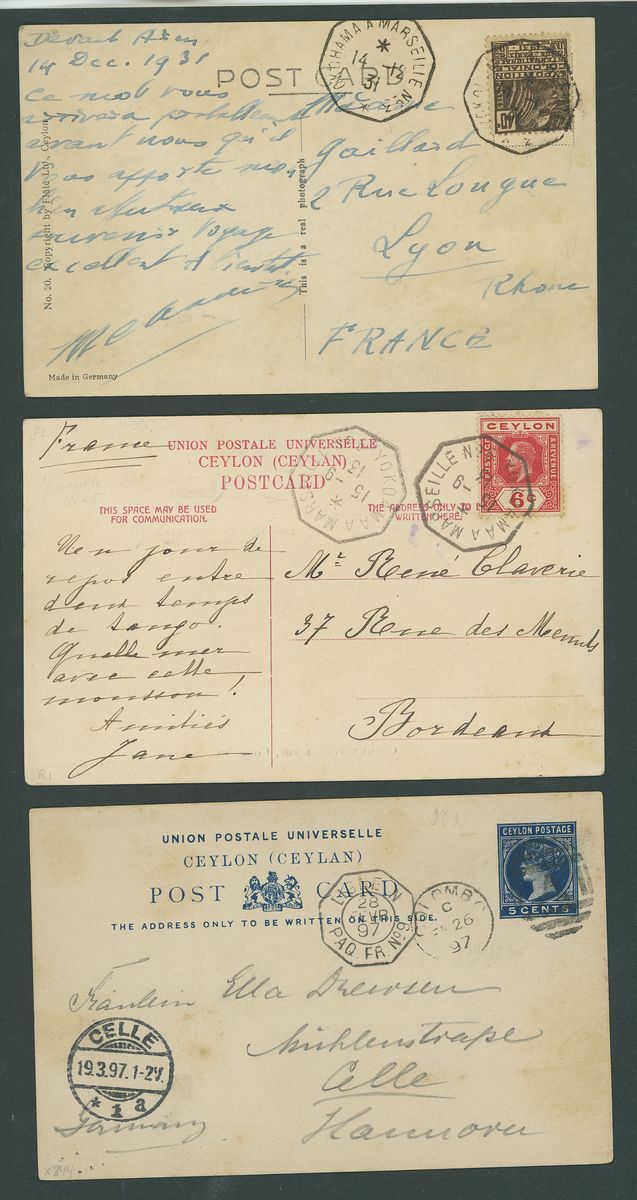 Devant Aden
14 Dec. 1931
POST CARD
Ce mot vous
arrivera
avant nous qu'il
vous apporte
souvenir voyage
excellent
YOKOHAMA A MARSEILLE
14 12
31
No. 20. Copyright by Plâté Ltd., Ceylon.
This is a real photograph
Made in Germany
Madame
Gaillard
2 Rue Longue
Lyon
Rhone
FRANCE
France
UNION POSTALE UNIVERSELLE
CEYLON (CEYLAN)
POSTCARD
THIS SPACE MAY BE USED
FOR COMMUNICATION.
THE ADDRESS ONLY TO
WRITTEN HERE.
CEYLON
POSTAGE
& REVENUE
6c
Un jour de
repos entre
deux temps
de tango.
Quelle mer
avec cette
mousson!
Amitiés
Jane
Mr René Claverie
37 Rue des Menuts
Bordeaux
R1
UNION POSTALE UNIVERSELLE
CEYLON (CEYLAN)
POST CARD
THE ADDRESS ONLY TO BE WRITTEN ON THIS SIDE.
CEYLON POSTAGE
5 CENTS
28
FEVR
97
PAQ. FR. No 6
COLOMBO
C
26
97
Fräulein Ella Drewsen
Mühlenstraße
Celle
Hannover
Germany
CELLE
19.3.97.1-2V.
* 1 a
x844